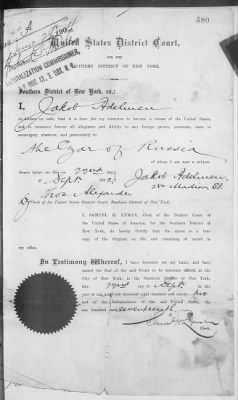 580
United States District Court,
FOR THE
SOUTHERN DISTRICT OF NEW YORK.
Southern District of New York, ss.:
I, Jakob Adelman
do declare on oath, that it is bona fide my intention to become a citizen of the United States,
and to renounce forever all allegiance and fidelity to any foreign prince, potentate, state or
sovereignty whatever, and particularly to
the Czar of Russia
of whom I am now a subject.
Sworn before me this 22nd day
of Sept. 1892 Jakob Adelman,
Alexander Madison St.
Clerk of the United States District Court, Southern District of New York.
I, SAMUEL H. LYMAN, Clerk of the District Court of
the United States of America, for the Southern District of
New York, do hereby certify that the above is a true
copy of the Original on file, and remaining of record in
my office.
In Testimony Whereof, I have hereunto set my hand, and
caused the Seal of the said Court to be hereunto affixed, at the
City of New York, in the Southern District of New York, this
22nd day of Sept. in the
year of our Lord one thousand eight hundred and ninety two
and of the Independence of the said United States, the
one hundred and seventeenth
Clerk.